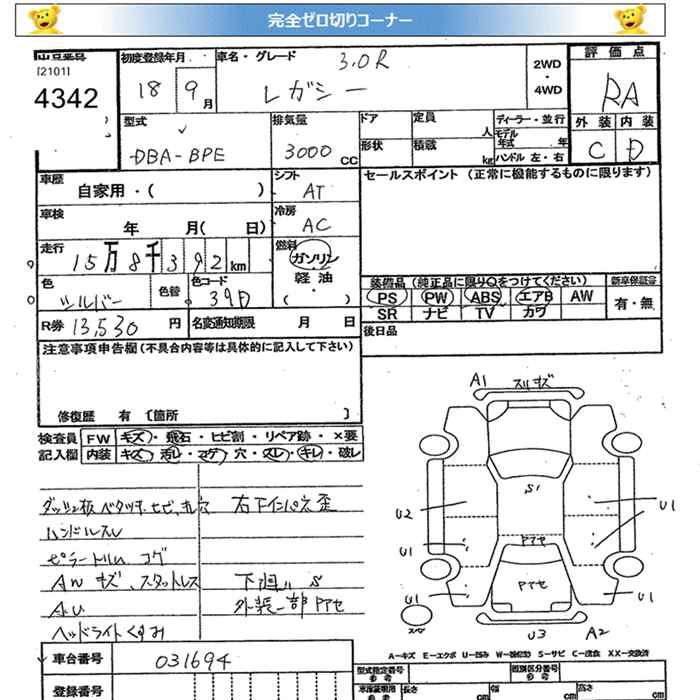 完全ゼロ切りコーナー
出品番号
[2101]
4342
初度登録年月
18 9月
車名・グレード
3.0R
レガシー
2WD
・
4WD
評価点
RA
外装 内装
C D
型式
DBA-BPE
排気量
3000 CC
ドア
定員 人
形状
積載 kg
ディーラー・並行
モデル年式 年
ハンドル 左・右
車歴
自家用・( )
シフト
AT
セールスポイント (正常に機能するものに限ります)
車検
年 月( 日)
冷房
AC
走行
15万8千392km
燃料
ガソリン
軽油
( )
色
シルバー
色替
色コード
39D
装備品 (純正品に限り○をつけてください)
新車保証書
PS PW ABS エアB AW
有・無
SR ナビ TV カワ
R券 13,530 円
名変通知期限 月 日
後日品
注意事項申告欄(不具合内容等は具体的に記入して下さい)
修復歴 有 [箇所 ]
検査員 FW キズ・飛石・ヒビ割・リペア跡・×要
記入欄 内装 キズ・汚レ・コゲ・穴・スレ・キレ・破レ
右下インパネ歪
ハンドルスレ
ピラートリム コゲ
AWキズ、スタットレス
下廻りS
AU
外装一部Pアセ
ヘッドライトくすみ
A1 スリキズ
S1
U2
U1
U1
Pアセ
U1
Pアセ
U1
スペア
U3
A2
A-キズ E-エクボ U-凹み W-補修跡 S-サビ C-腐食 XX-交換済
車台番号 031694
登録番号
型式指定番号
参考
類別区分番号
参考
長さ cm
幅 cm
高さ cm